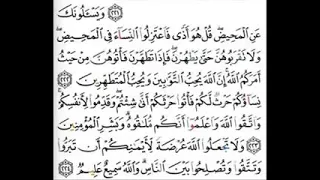 ﴿٢٢١﴾ وَيَسْـَٔلُونَكَ
عَنِ ٱلْمَحِيضِ ۖ قُلْ هُوَ أَذًى فَٱعْتَزِلُوا۟ ٱلنِّسَآءَ فِى ٱلْمَحِيضِ ۖ
وَلَا تَقْرَبُوهُنَّ حَتَّىٰ يَطْهُرْنَ ۖ فَإِذَا تَطَهَّرْنَ فَأْتُوهُنَّ مِنْ حَيْثُ
أَمَرَكُمُ ٱللَّهُ ۚ إِنَّ ٱللَّهَ يُحِبُّ ٱلتَّوَّٰبِينَ وَيُحِبُّ ٱلْمُتَطَهِّرِينَ ﴿٢٢٢﴾
نِسَآؤُكُمْ حَرْثٌ لَّكُمْ فَأْتُوا۟ حَرْثَكُمْ أَنَّىٰ شِئْتُمْ ۖ وَقَدِّمُوا۟ لِأَنفُسِكُمْ ۚ
وَٱتَّقُوا۟ ٱللَّهَ وَٱعْلَمُوٓا۟ أَنَّكُم مُّلَٰقُوهُ ۗ وَبَشِّرِ ٱلْمُؤْمِنِينَ
﴿٢٢٣﴾ وَلَا تَجْعَلُوا۟ ٱللَّهَ عُرْضَةً لِّأَيْمَٰنِكُمْ أَن تَبَرُّوا۟
وَتَتَّقُوا۟ وَتُصْلِحُوا۟ بَيْنَ ٱلنَّاسِ ۗ وَٱللَّهُ سَمِيعٌ عَلِيمٌ ﴿٢٢٤﴾